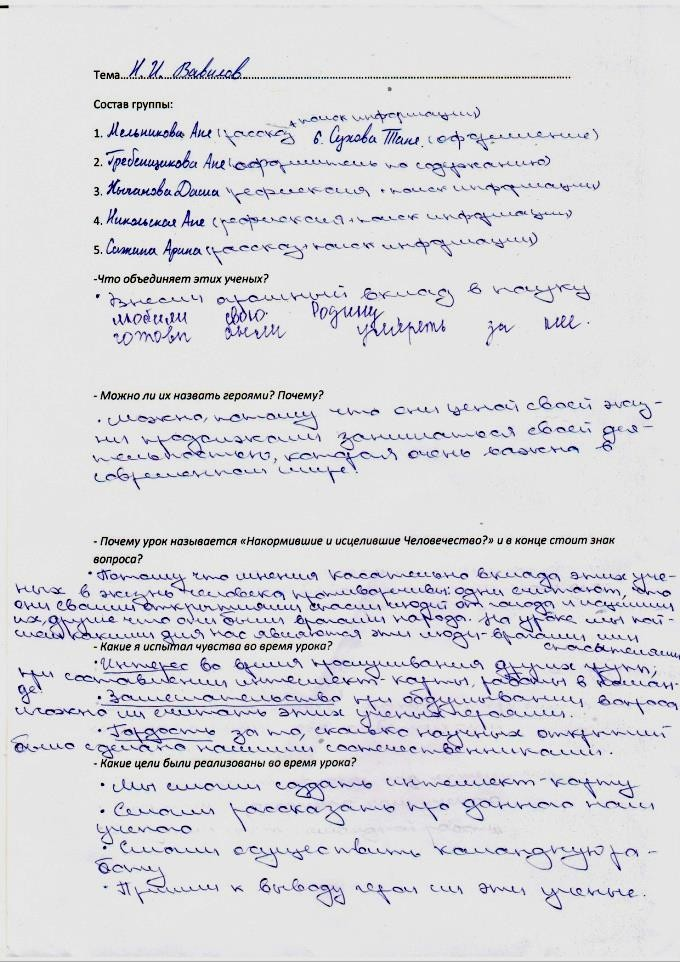 Тема...Н. И. Вавилов...
Состав группы:
+поиск информации)
1. Мельникова Аня (рассказ 6. Сухова Таня (оформление)
2. Гребенщикова Аня (оформитель по содержанию)
3. Даша (рефлексия +поиск информации)
4. Никольская Аня (рефлексия+поиск информации)
5. Арина (рассказ+поиск информации)
-Что объединяет этих ученых?
• Внесли огромный вклад в науку
любили свою Родину
готовы были умереть за нее.
- Можно ли их назвать героями? Почему?
• Можно, потому что они ценой своей жиз-
ни продолжали заниматься своей дея-
тельностью, которая очень важна в
современном мире.
- Почему урок называется «Накормившие и исцелившие Человечество?» и в конце стоит знак
вопроса?
• Потому что мнения касательно вклада этих уче-
ных в жизнь человека противоречивы: одни считают, что
они своими открытиями спасли людей от голода и исцелили
их, другие что они были врагами народа. На уроке мы
какими для нас являются эти люди-врагами или
спасателями
- Какие я испытал чувства во время урока?
• Интерес во время прослушивания других групп,
при составлении интеллект-карты, работы в коман-
де
• Замешательство при обдумывании вопроса
можно ли считать этих ученых героями.
• Гордость за то, сколько научных открытий
было сделано нашими соотечественниками.
- Какие цели были реализованы во время урока?
• Мы смогли создать интеллект-карту
• Смогли рассказать про данного нам
ученого
• Смогли осуществить командную ра-
боту
• Пришли к выводу герои ли эти ученые.